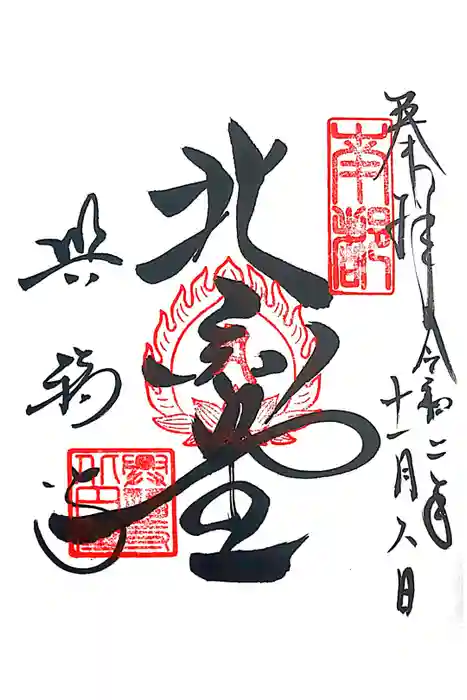 奉拝 令和二年
十一月八日
南都
北圓堂
興福寺